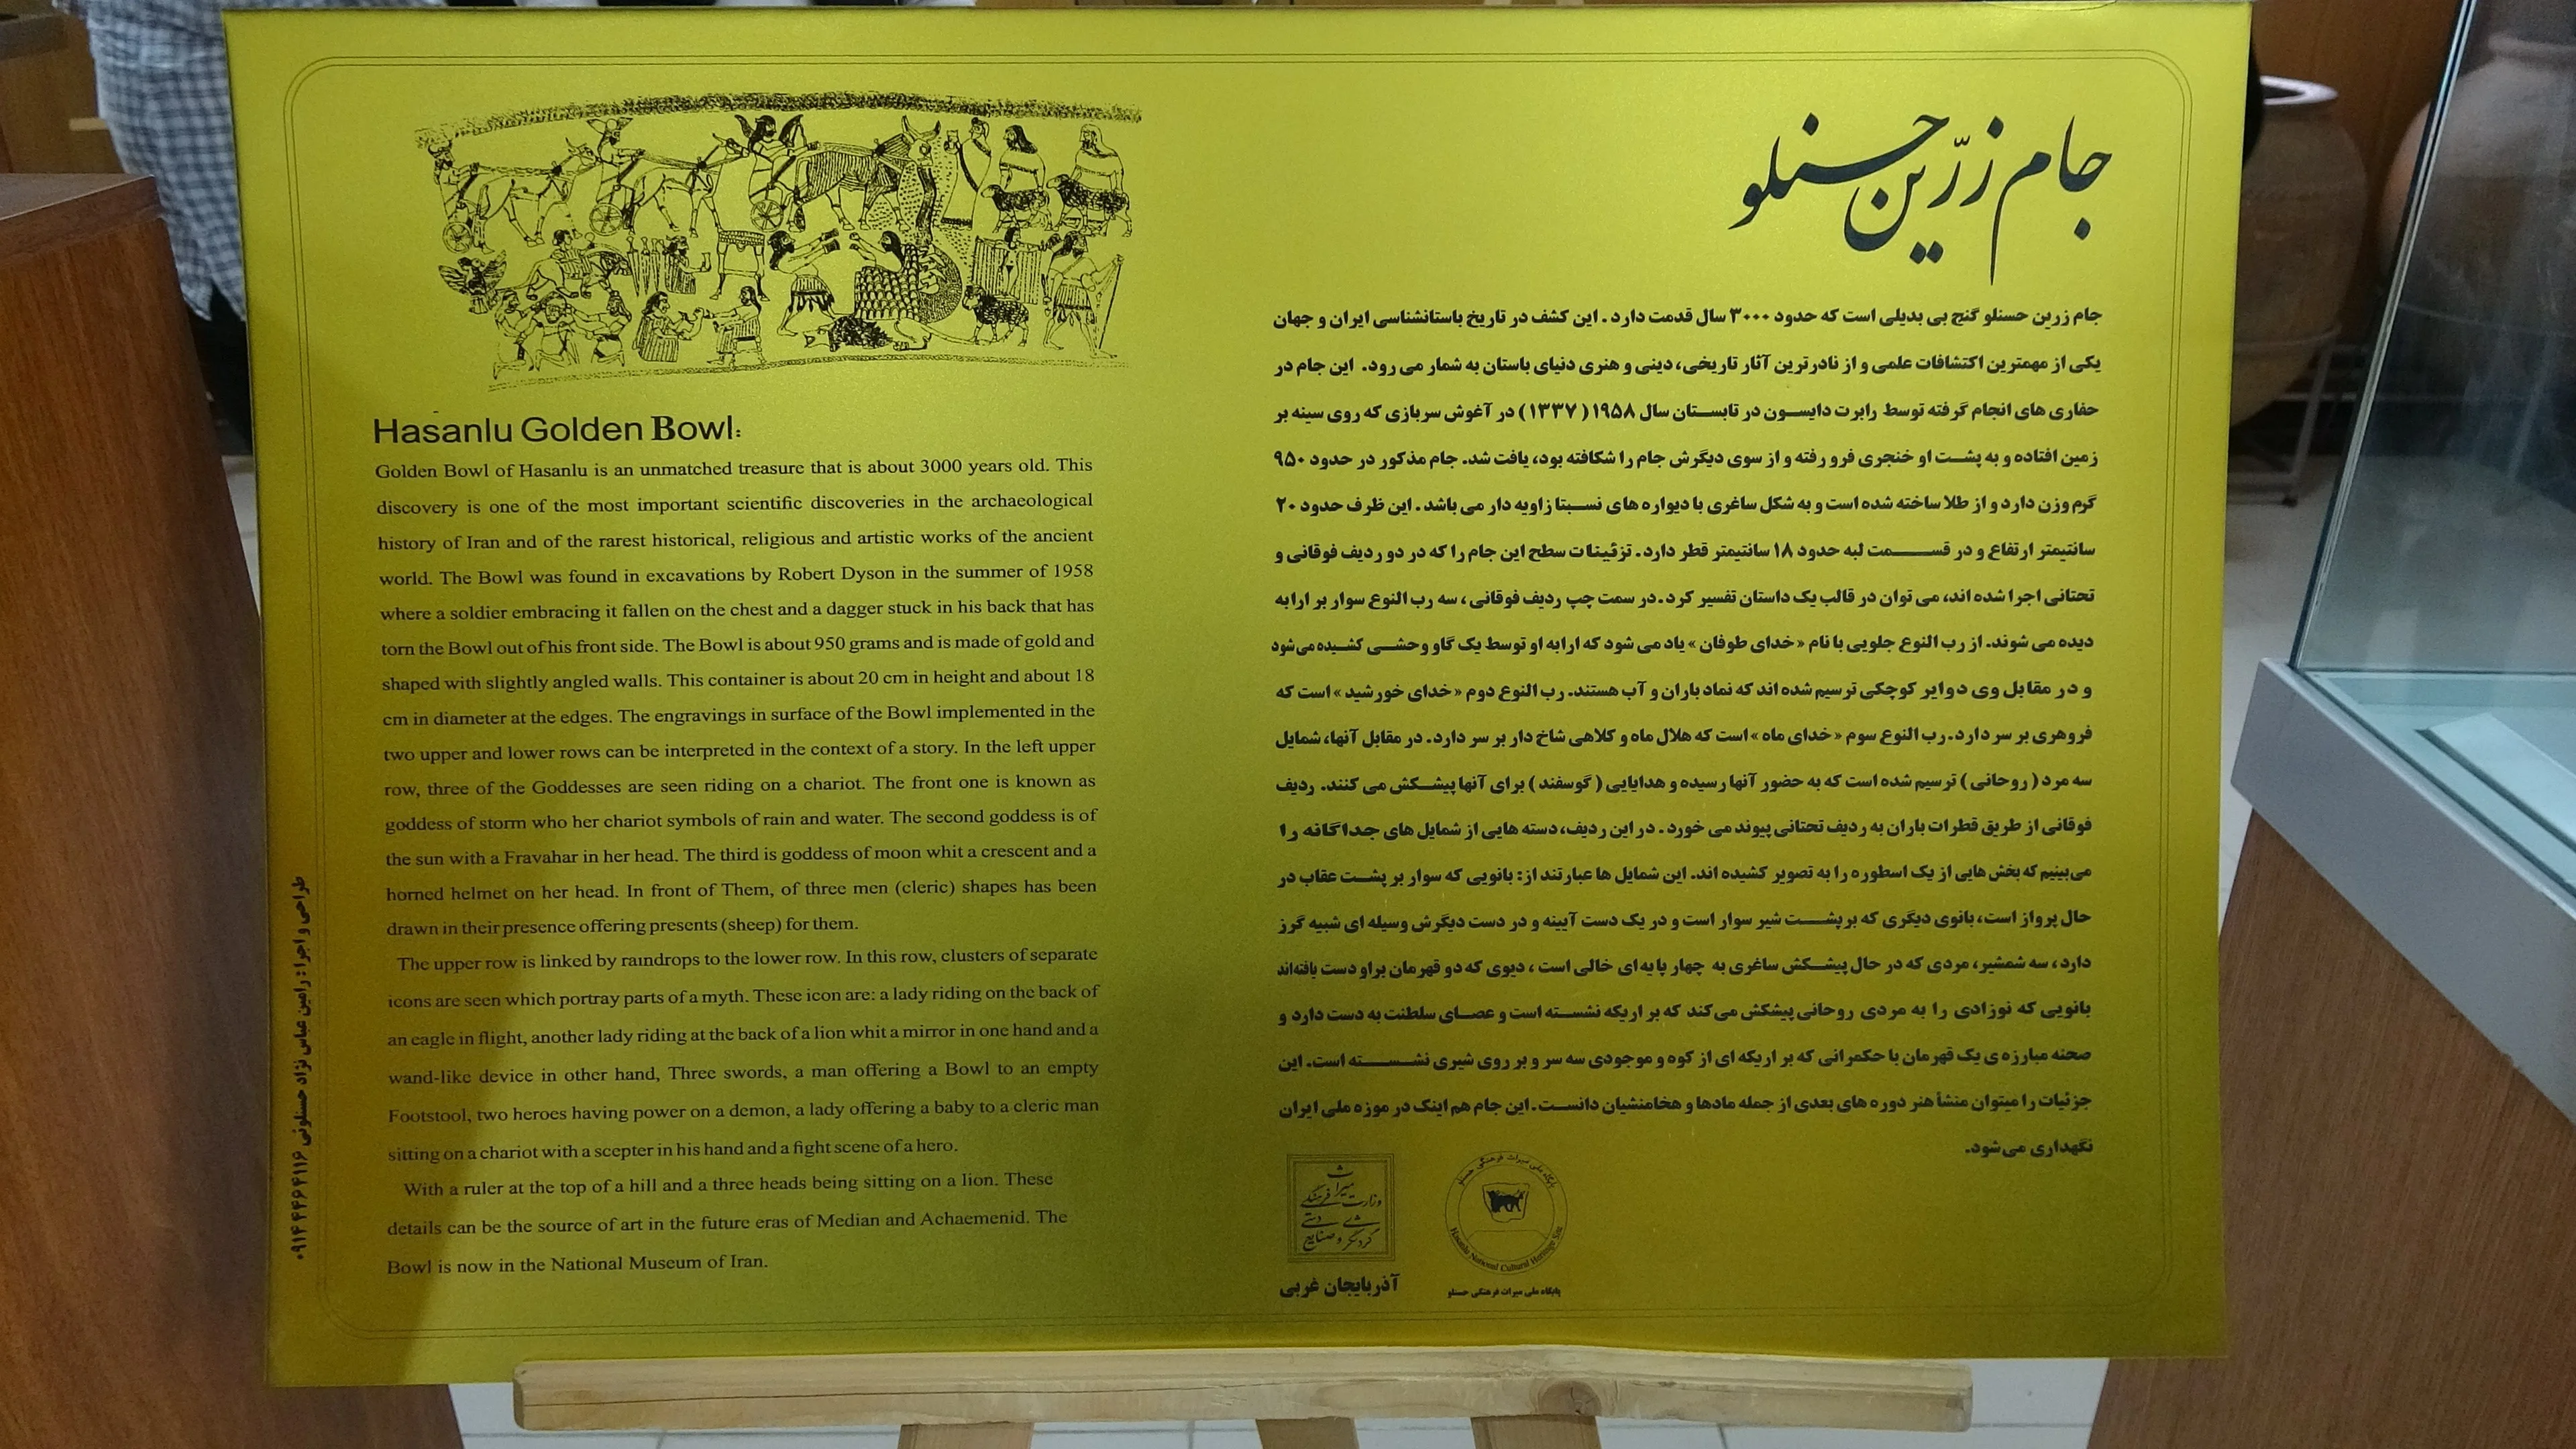 Hasanlu Golden Bowl:
Golden Bowl of Hasanlu is an unmatched treasure that is about 3000 years old. This
discovery is one of the most important scientific discoveries in the archaeological
history of Iran and of the rarest historical, religious and artistic works of the ancient
world. The Bowl was found in excavations by Robert Dyson in the summer of 1958
where a soldier embracing it fallen on the chest and a dagger stuck in his back that has
torn the Bowl out of his front side. The Bowl is about 950 grams and is made of gold and
shaped with slightly angled walls. This container is about 20 cm in height and about 18
cm in diameter at the edges. The engravings in surface of the Bowl implemented in the
two upper and lower rows can be interpreted in the context of a story. In the left upper
row, three of the Goddesses are seen riding on a chariot. The front one is known as
goddess of storm who her chariot symbols of rain and water. The second goddess is of
the sun with a Fravahar in her head. The third is goddess of moon whit a crescent and a
horned helmet on her head. In front of Them, of three men (cleric) shapes has been
drawn in their presence offering presents (sheep) for them.
The upper row is linked by raindrops to the lower row. In this row, clusters of separate
icons are seen which portray parts of a myth. These icon are: a lady riding on the back of
an eagle in flight, another lady riding at the back of a lion whit a mirror in one hand and a
wand-like device in other hand, Three swords, a man offering a Bowl to an empty
Footstool, two heroes having power on a demon, a lady offering a baby to a cleric man
sitting on a chariot with a scepter in his hand and a fight scene of a hero.
With a ruler at the top of a hill and a three heads being sitting on a lion. These
details can be the source of art in the future eras of Median and Achaemenid. The
Bowl is now in the National Museum of Iran.
جام زرّین حسنلو
جام زرین حسنلو گنج بی بدیلی است که حدود ۳۰۰۰ سال قدمت دارد . این کشف در تاریخ باستانشناسی ایران و جهان
یکی از مهمترین اکتشافات علمی و از نادرترین آثار تاریخی، دینی و هنری دنیای باستان به شمار می رود. این جام در
حفاری های انجام گرفته توسط رابرت دایسون در تابستان سال ۱۹۵۸ ( ۱۳۳۷ ) در آغوش سربازی که روی سینه بر
زمین افتاده و به پشت او خنجری فرو رفته و از سوی دیگرش جام را شکافته بود، یافت شد. جام مذکور در حدود ۹۵۰
گرم وزن دارد و از طلا ساخته شده است و به شکل ساغری با دیواره های نسبتا زاویه دار می باشد . این ظرف حدود ۲۰
سانتیمتر ارتفاع و در قسمت لبه حدود ۱۸ سانتیمتر قطر دارد. تزئینات سطح این جام را که در دو ردیف فوقانی و
تحتانی اجرا شده اند، می توان در قالب یک داستان تفسیر کرد . در سمت چپ ردیف فوقانی ، سه رب النوع سوار بر ارابه
دیده می شوند. از رب النوع جلویی با نام « خدای طوفان » یاد می شود که ارابه او توسط یک گاو وحشی کشیده می‌شود
و در مقابل وی دوایر کوچکی ترسیم شده اند که نماد باران و آب هستند. رب النوع دوم « خدای خورشید » است که
فروهری بر سر دارد. رب النوع سوم « خدای ماه » است که هلال ماه و کلاهی شاخ دار بر سر دارد. در مقابل آنها، شمایل
سه مرد ( روحانی ) ترسیم شده است که به حضور آنها رسیده و هدایایی ( گوسفند ) برای آنها پیشکش می کنند. ردیف
فوقانی از طریق قطرات باران به ردیف تحتانی پیوند می خورد . در این ردیف، دسته هایی از شمایل های جداگانه را
می‌بینیم که بخش هایی از یک اسطوره را به تصویر کشیده اند. این شمایل ها عبارتند از: بانویی که سوار بر پشت عقاب در
حال پرواز است، بانوی دیگری که بر پشت شیر سوار است و در یک دست آیینه و در دست دیگرش وسیله ای شبیه گرز
دارد ، سه شمشیر، مردی که در حال پیشکش ساغری به چهار پایه ای خالی است ، دیوی که دو قهرمان براو دست یافته‌اند
بانویی که نوزادی را به مردی روحانی پیشکش می‌کند که بر اریکه نشسته است و عصای سلطنت به دست دارد و
صحنه مبارزه ی یک قهرمان با حکمرانی که بر اریکه ای از کوه و موجودی سه سر و بر روی شیری نشسته است. این
جزئیات را میتوان منشأ هنر دوره های بعدی از جمله مادها و هخامنشیان دانست. این جام هم اینک در موزه ملی ایران
نگهداری می‌شود.
میراث
وزارت فرهنگی
گردشگری و صنایع دستی
آذربایجان غربی
پایگاه ملی میراث فرهنگی حسنلو
Hasanlu National Cultural Heritage Site
پایگاه ملی میراث فرهنگی حسنلو
طراحی و اجرا : رامین عباس نژاد حسنلوئی ۰۹۱۴۴۴۶۴۱۱۶